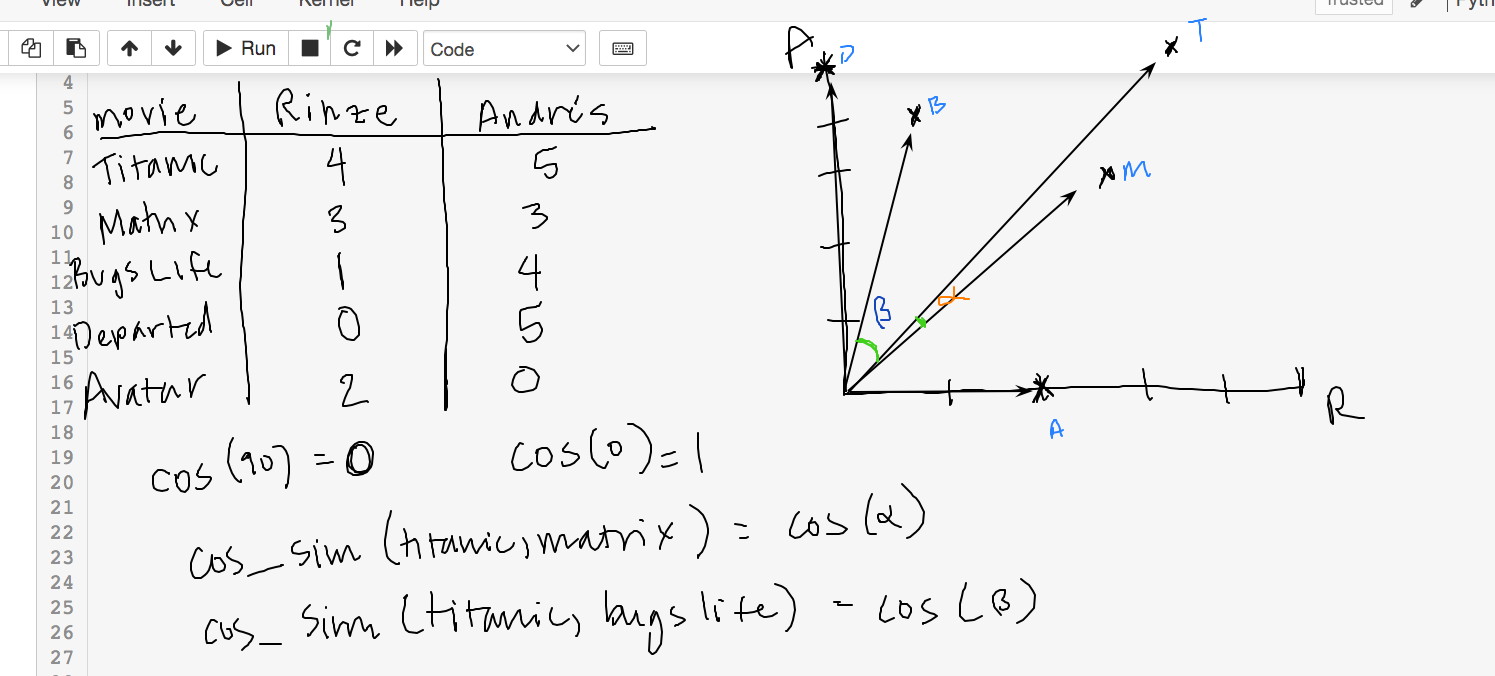 View Insert Cell Kernel Help Trusted
Run Code
4
5
6
7
8
9
10
11
12
13
14
15
16
17
18
19
20
21
22
23
24
25
26
27
movie Rinze Andrés
Titanic 4 5
Matrix 3 3
Bugs Life 1 4
Departed 0 5
Avatar 2 0
A
D
B
T
M
β
α
A
R
cos(90) = 0 cos(0) = 1
cos_sim (titanic, matrix) = cos(α)
cos_sim (titanic, bugs life) = cos(β)